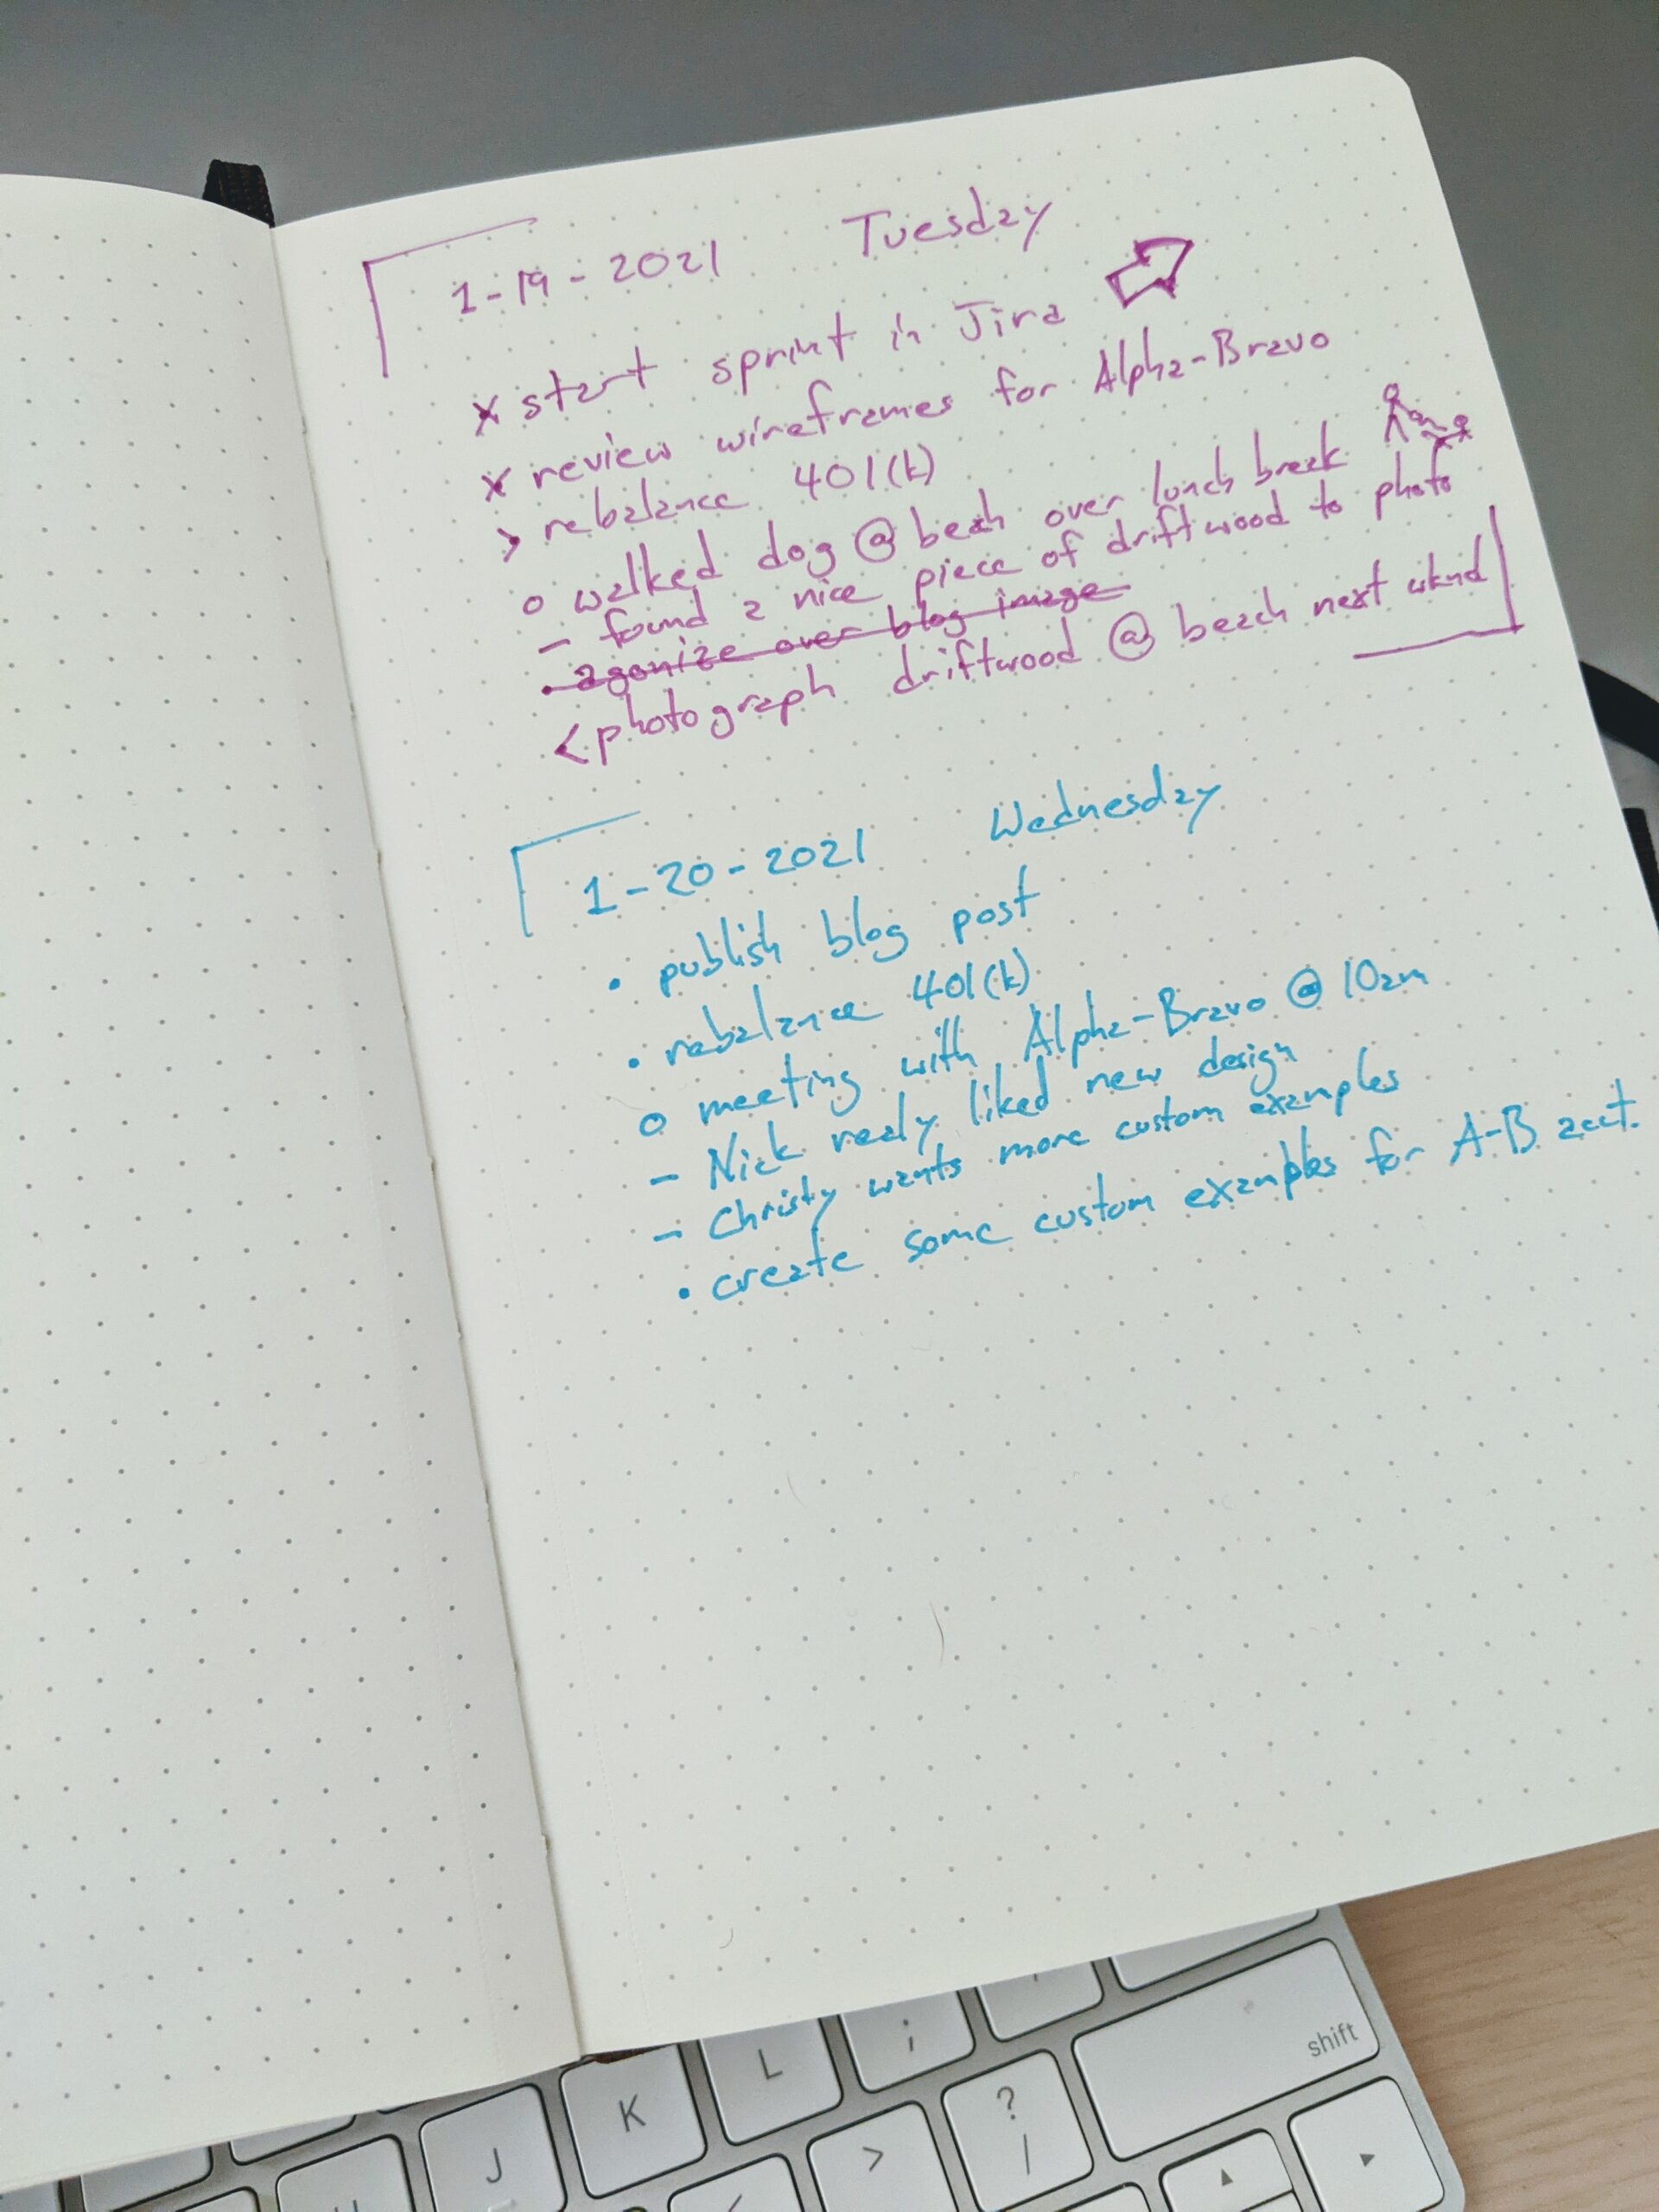 1-19-2021 Tuesday
x start sprint in Jira
x review wireframes for Alpha-Bravo
> rebalance 401(k)
o walked dog @ beach over lunch break
- found a nice piece of driftwood to photo
• agonize over blog image
< photograph driftwood @ beach next wknd
1-20-2021 Wednesday
• publish blog post
• rebalance 401(k)
o meeting with Alpha-Bravo @ 10am
- Nick realy liked new design
- Christy wants more custom examples
• create some custom examples for A-B acct.
shift
L ;
K ? /
J >